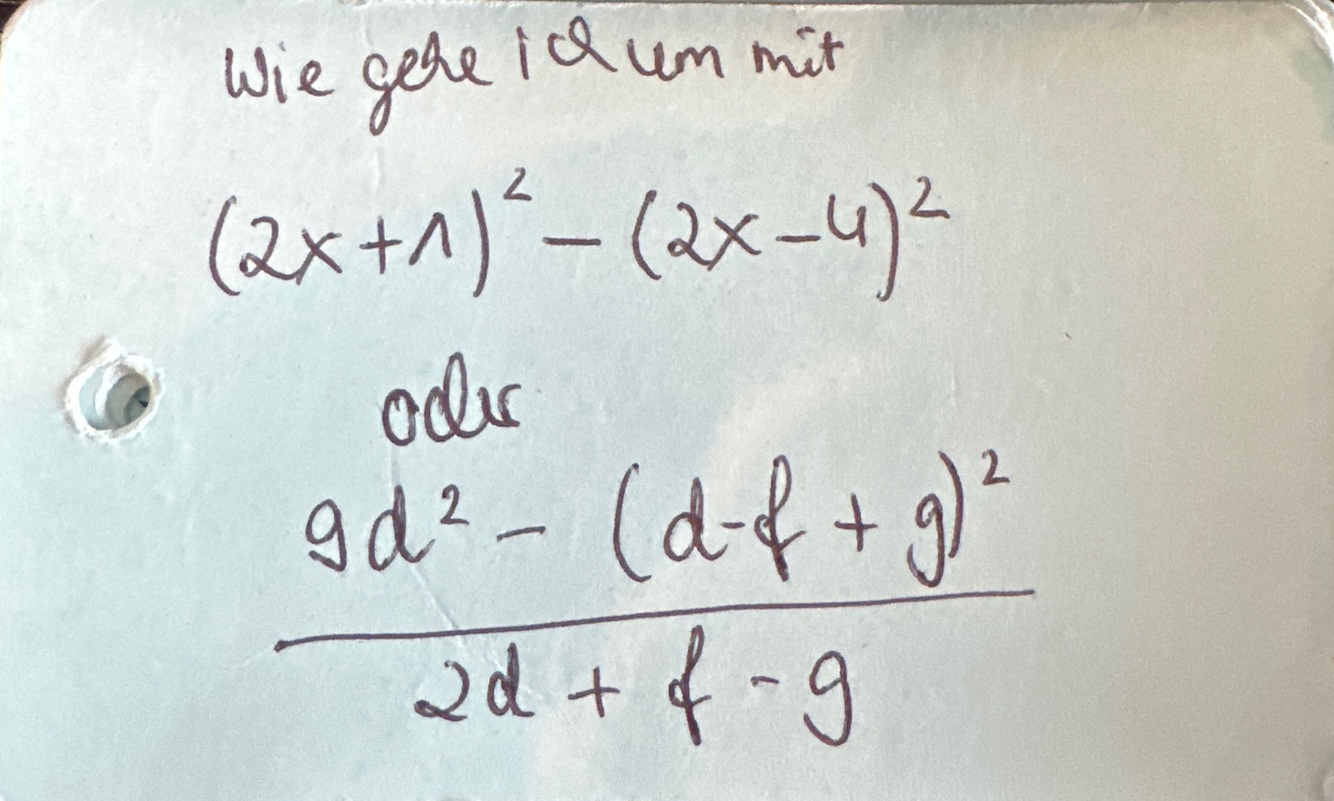 Wie gehe ich um mit
(2x+1)² - (2x-4)²
oder
9d² - (d-f+g)²
2d + f - g